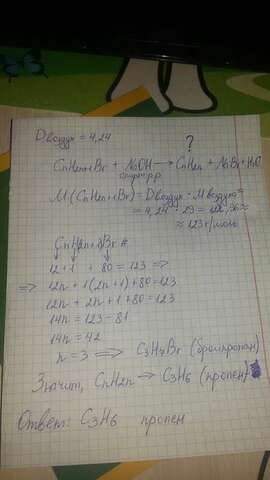 Dвоздух = 4,24
?
CnH2n+1Br + NaOH → CnH2n + NaBr + H2O
спирт.р-р
M (CnH2n+1Br) = Dвоздух · Mвоздух =
= 4,24 · 29 = 122,96 ≈
≈ 123 г/моль
CnH2n+1Br
12+1 + 80 = 123 =>
=> 12n + 1(2n+1) + 80 = 123
12n + 2n + 1 + 80 = 123
14n = 123 - 81
14n = 42
n = 3 => C3H7Br (бромпропан)
Значит, CnH2n → C3H6 (пропен)
Ответ: C3H6 пропен